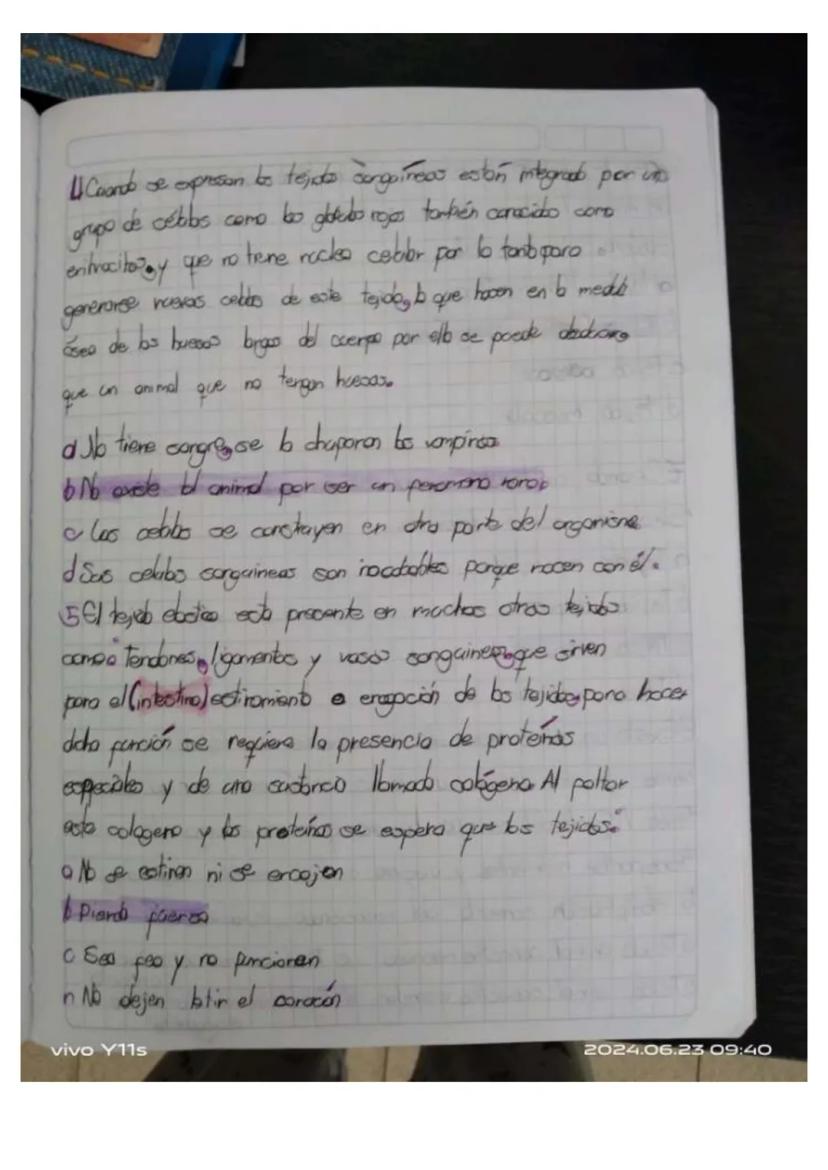 1) Cuando se expresan los tejido sanguíneos están integrado por un
grupo de celulas como los globulo rojos también conocido como
eritrocitos, y que no tiene nucleo celular por lo tanto para
generarse nuevas celulas de este tejido, lo que hacen en la medula
ósea de los huesos largos del cuerpo por ello se puede deducir
que un animal que no tengan huesos.
a No tiene sangre, se lo chuparon los vampiros
b No existe el animal por ser un fenomeno raro.
c Las celulas se construyen en otra parte del organismo
d Sus celulas sanguineas son inacabables porque nacen con él.
5 El tejido elastico esta presente en muchos otros tejido
como: Tendones, ligamentos y vasos sanguineos, que sirven
para el (intestino) estiramiento o encogción de los tejidos, para hacer
dicha función se requiere la presencia de proteínas
especiales y de una sustancia llamado colágeno. Al faltar
este colageno y las proteínas se espera que los tejidos:
a No se estiren ni se encojan
b Pierda fuerza
c Sea feo y no funcionen
n No dejen latir el corazón
vivo Y11s
2024.06.23 09:40